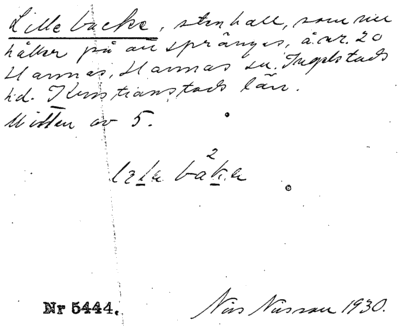 Lille backe, stenhall, som nu
håller på att sprängas, å nr. 20
Hannas, Hannas sn. Ingelstads
hd. Kristianstads län.
Mitten av 5.
2
Nr 5444. Nils Nilsson 1930.